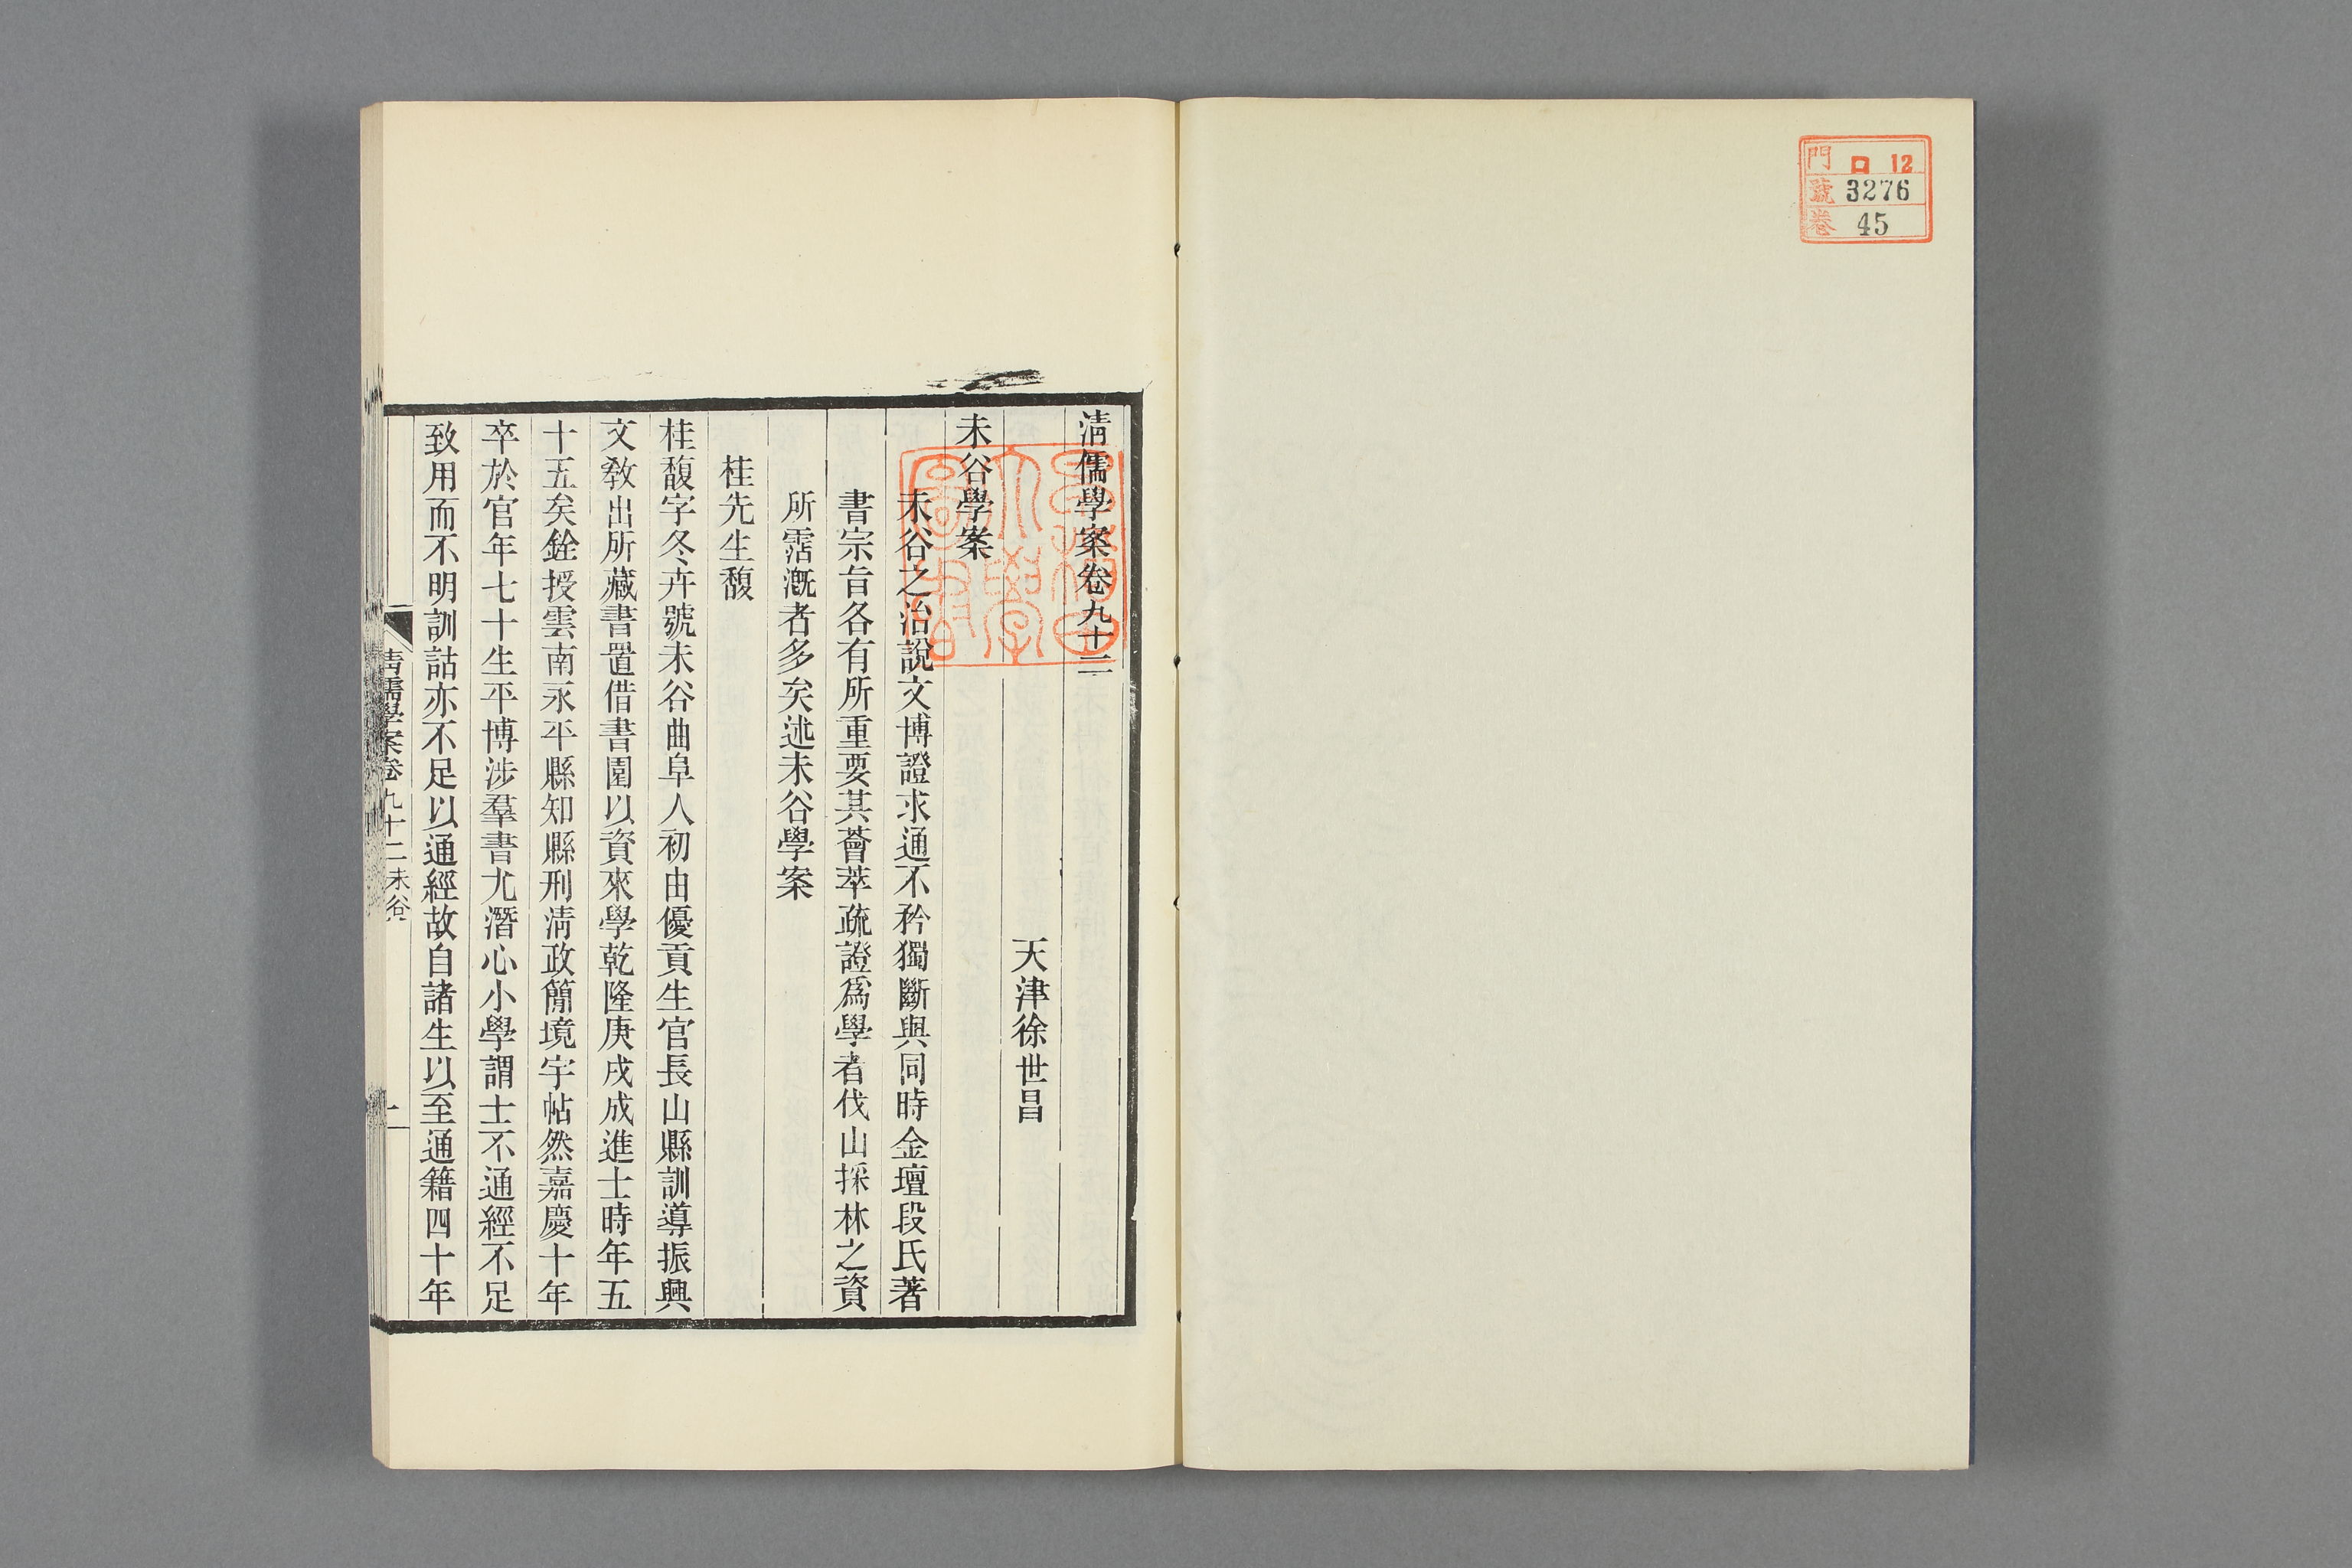 門 口 12
號 3276
卷 45
清儒學案卷九十二
天津徐世昌
未谷學案
未谷之治說文博證求通不矜獨斷與同時金壇段氏著
書宗旨各有所重要其薈萃疏證爲學者伐山採林之資
所霑漑者多矣述未谷學案
桂先生馥
桂馥字冬卉號未谷曲阜人初由優貢生官長山縣訓導振興
文敎出所藏書置借書園以資來學乾隆庚戌成進士時年五
十五矣銓授雲南永平縣知縣刑淸政簡境宇帖然嘉慶十年
卒於官年七十生平博涉羣書尤潛心小學謂士不通經不足
致用而不明訓詁亦不足以通經故自諸生以至通籍四十年
清儒學案卷九十二 未谷